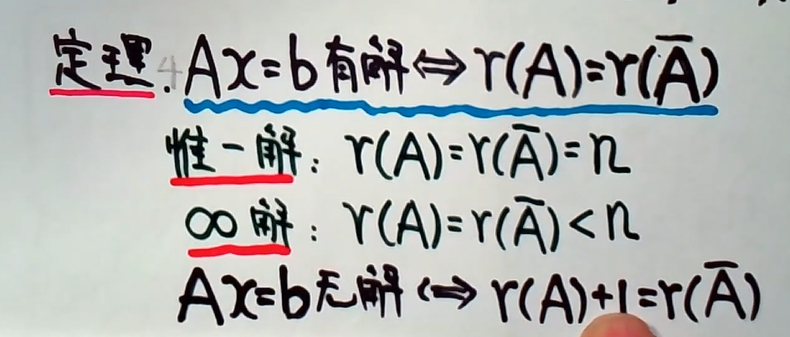 定理4. Ax=b有解⇔r(A)=r(Ā)
惟一解：r(A)=r(Ā)=n
∞解：r(A)=r(Ā)<n
Ax=b无解⇔r(A)+1=r(Ā)